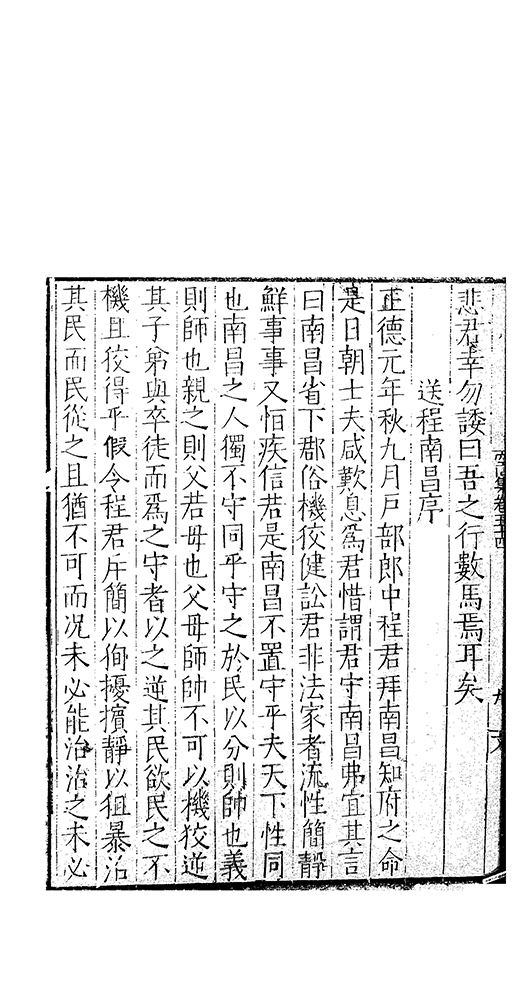 悲君幸勿諉曰吾之行數馬焉耳矣
送程南昌序
正德元年秋九月戸部郎中程君拜南昌知府之命
是日朝士夫咸歎息爲君惜謂君守南昌弗宜其言
曰南昌省下郡俗機狡健訟君非法家者流性簡靜
鮮事事又怕疾信若是南昌不置守乎夫天下性同
也南昌之人獨不守同乎守之於民以分則帥也義
則師也親之則父若母也父母師帥不可以機狡逆
其子弟與卒徒而爲之守者以之逆其民欲民之不
機且狡得乎假令程君斥簡以徇擾擯靜以狙暴治
其民而民從之且猶不可而况未必能治治之未必